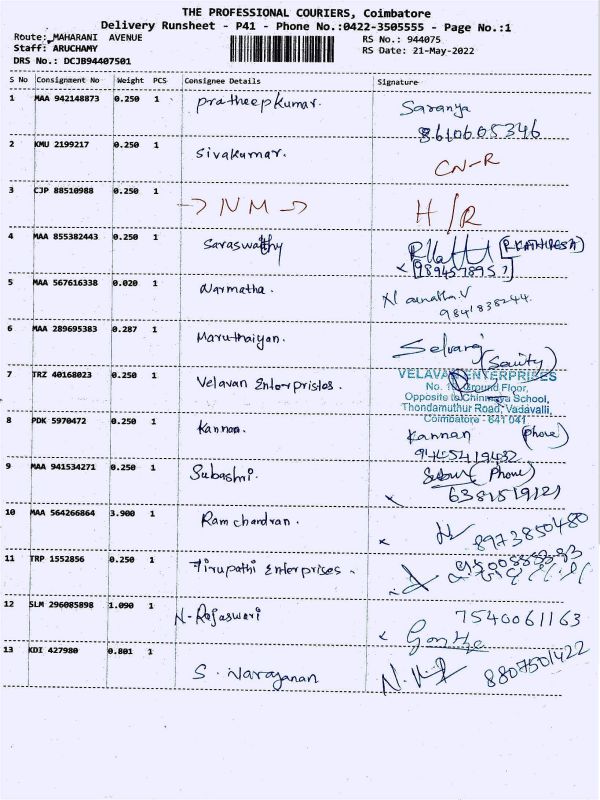 THE PROFESSIONAL COURIERS, Coimbatore
Delivery Runsheet - P41 - Phone No.:0422-3505555 - Page No.:1
Route: MAHARANI AVENUE RS No.: 944075
Staff: ARUCHAMY RS Date: 21-May-2022
DRS No.: DCJB94407501
S No Consignment No Weight PCS Consignee Details Signature
1 MAA 942148873 0.250 1 Pratheepkumar. Saranya
8610605346
2 KMU 2199217 0.250 1 Sivakumar. CN-R
3 CJP 88510988 0.250 1 → NM → H/R
4 MAA 855382443 0.250 1 Saraswathy
9894578957
5 MAA 567616338 0.020 1 Narmatha.
9841838244.
6 MAA 289695383 0.287 1 Maruthaiyan. Selvaraj
7 TRZ 40168023 0.250 1 Velavan Enterpristes. VELAVAN ENTERPRISES
Ground Floor,
Opposite to Chinmaya School,
Thondamuthur Road, Vadavalli,
Coimbatore - 641 041
8 PDK 5970472 0.250 1 Kannan. Kannan (Phone)
9445419432
9 MAA 941534271 0.250 1 Subashni. (Phone)
6381519121
10 MAA 564266864 3.900 1 Ramchardran. 8973850480
11 TRP 1552856 0.250 1 Tirupathi Enterprises.
12 SLM 296085898 1.090 1 N-Rajaswari 7540061163
13 KDI 427980 0.801 1 S. Narayanan 8807501422